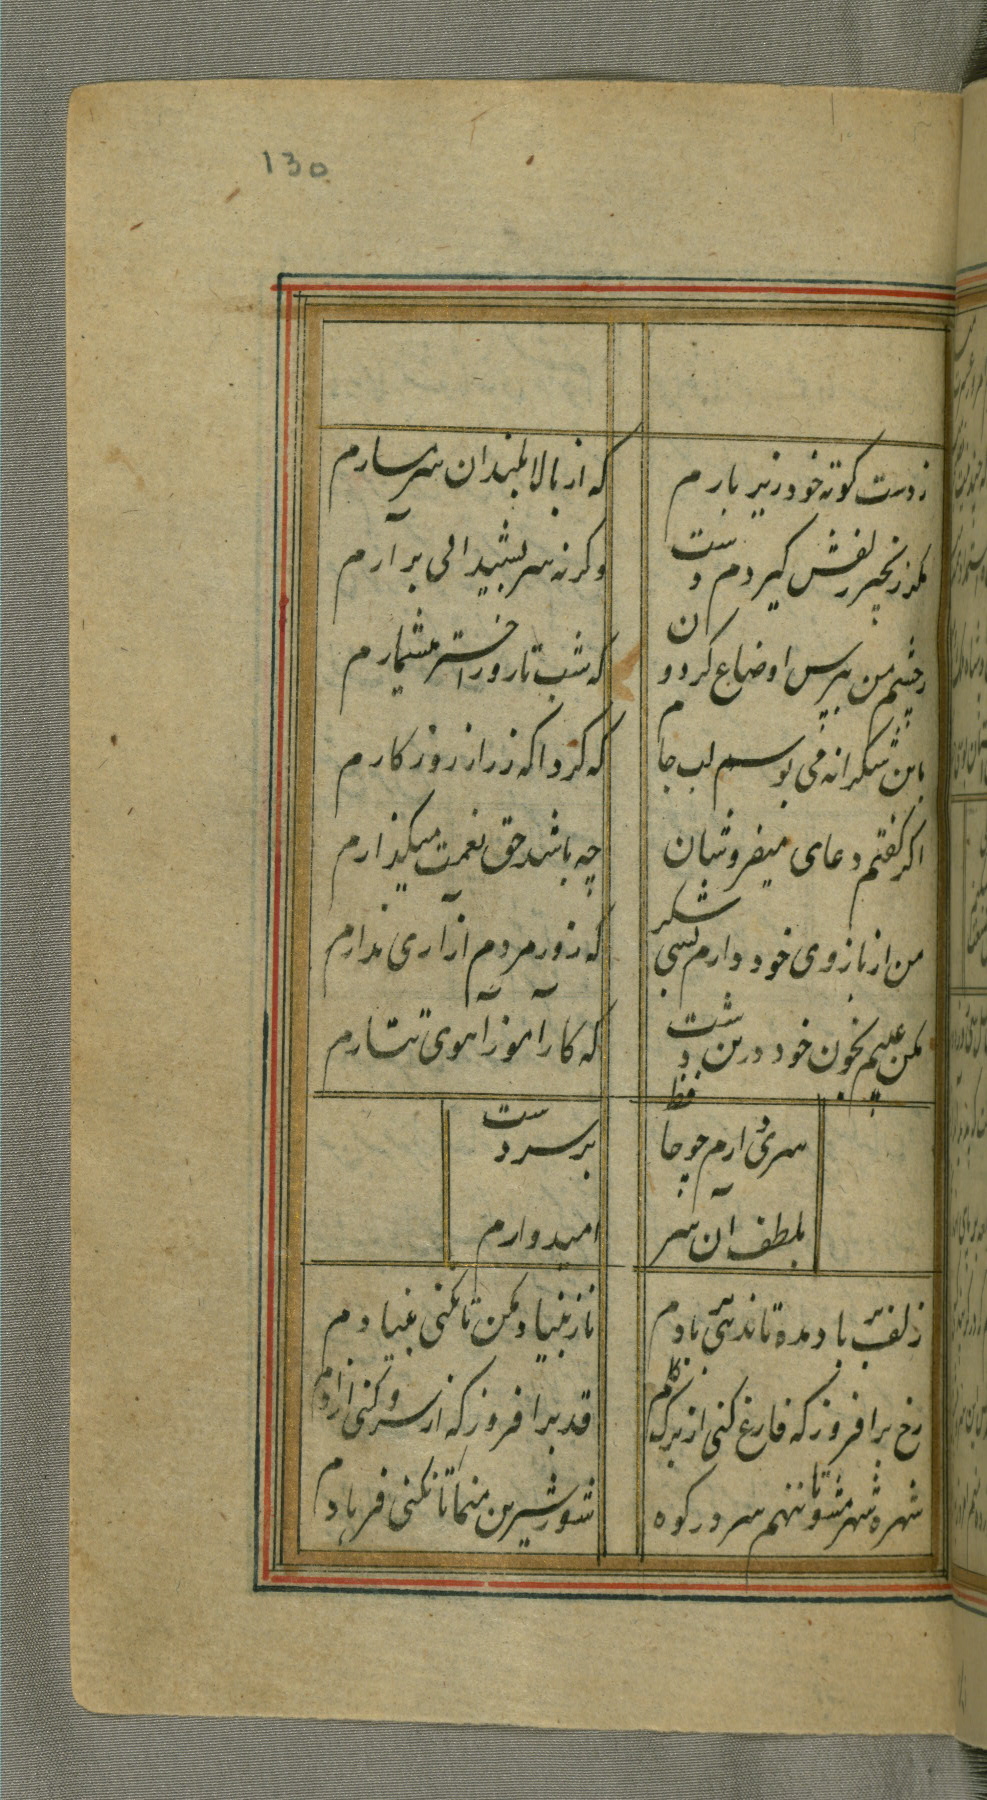 130
ز دست کوته خود زیر بارم
که از بالا بلندان شرمسارم
مگر زنجیر زلفش گیردم دست
وگرنه سر بشیدائی برآرم
ز چشم من بپرس اوضاع گردون
که شب تا روز اختر میشمارم
باین شکرانه می بوسم لب جام
که کرد اگه ز راز روزگارم
اگر گفتم دعای میفروشان
چه باشد حق نعمت میگذارم
من از بازوی خود دارم بسی شکر
که زور مردم آزاری ندارم
مکن عیبم بخون خود درین دشت
که کار آموز آهوی تتارم
سری دارم چو حافظ
برسر دست
بلطف آن سر
امیدوارم
زلف بر باد مده تا ندهی بر بادم
ناز بنیاد مکن تا نکنی بنیادم
رخ برافروز که فارغ کنی از برگ گلم
قد برافروز که از سرو کنی آزادم
شهره شهر مشو تا ننهم سر در کوه
شور شیرین منما تا نکنی فرهادم